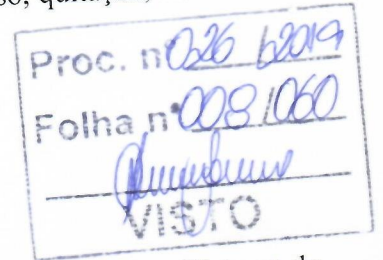 Proc. nº 026 /2019
Folha nº 008/060
VISTO